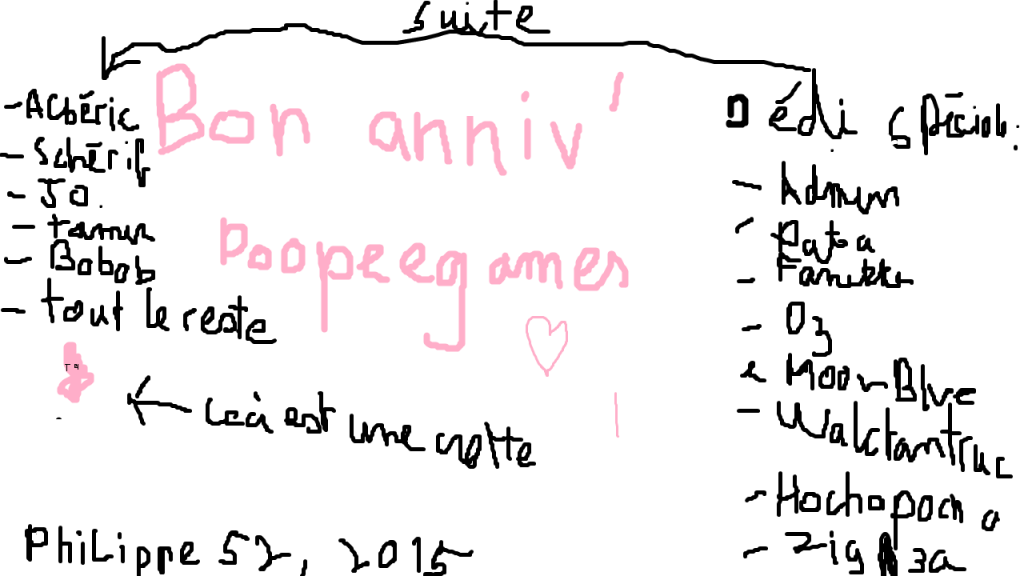 suite
Bon anniv'
Poopeegames
- Acbéric
- Schérif
- JO.
- Bobob
- tout le reste
ceci est une crotte
PhiLippe 52, 2015
Dédi spéciale:
- Admun
- Pata
- Fanette
- Oz
- MoonBlue
- Walctantruc
- Hochopocho
- Zig